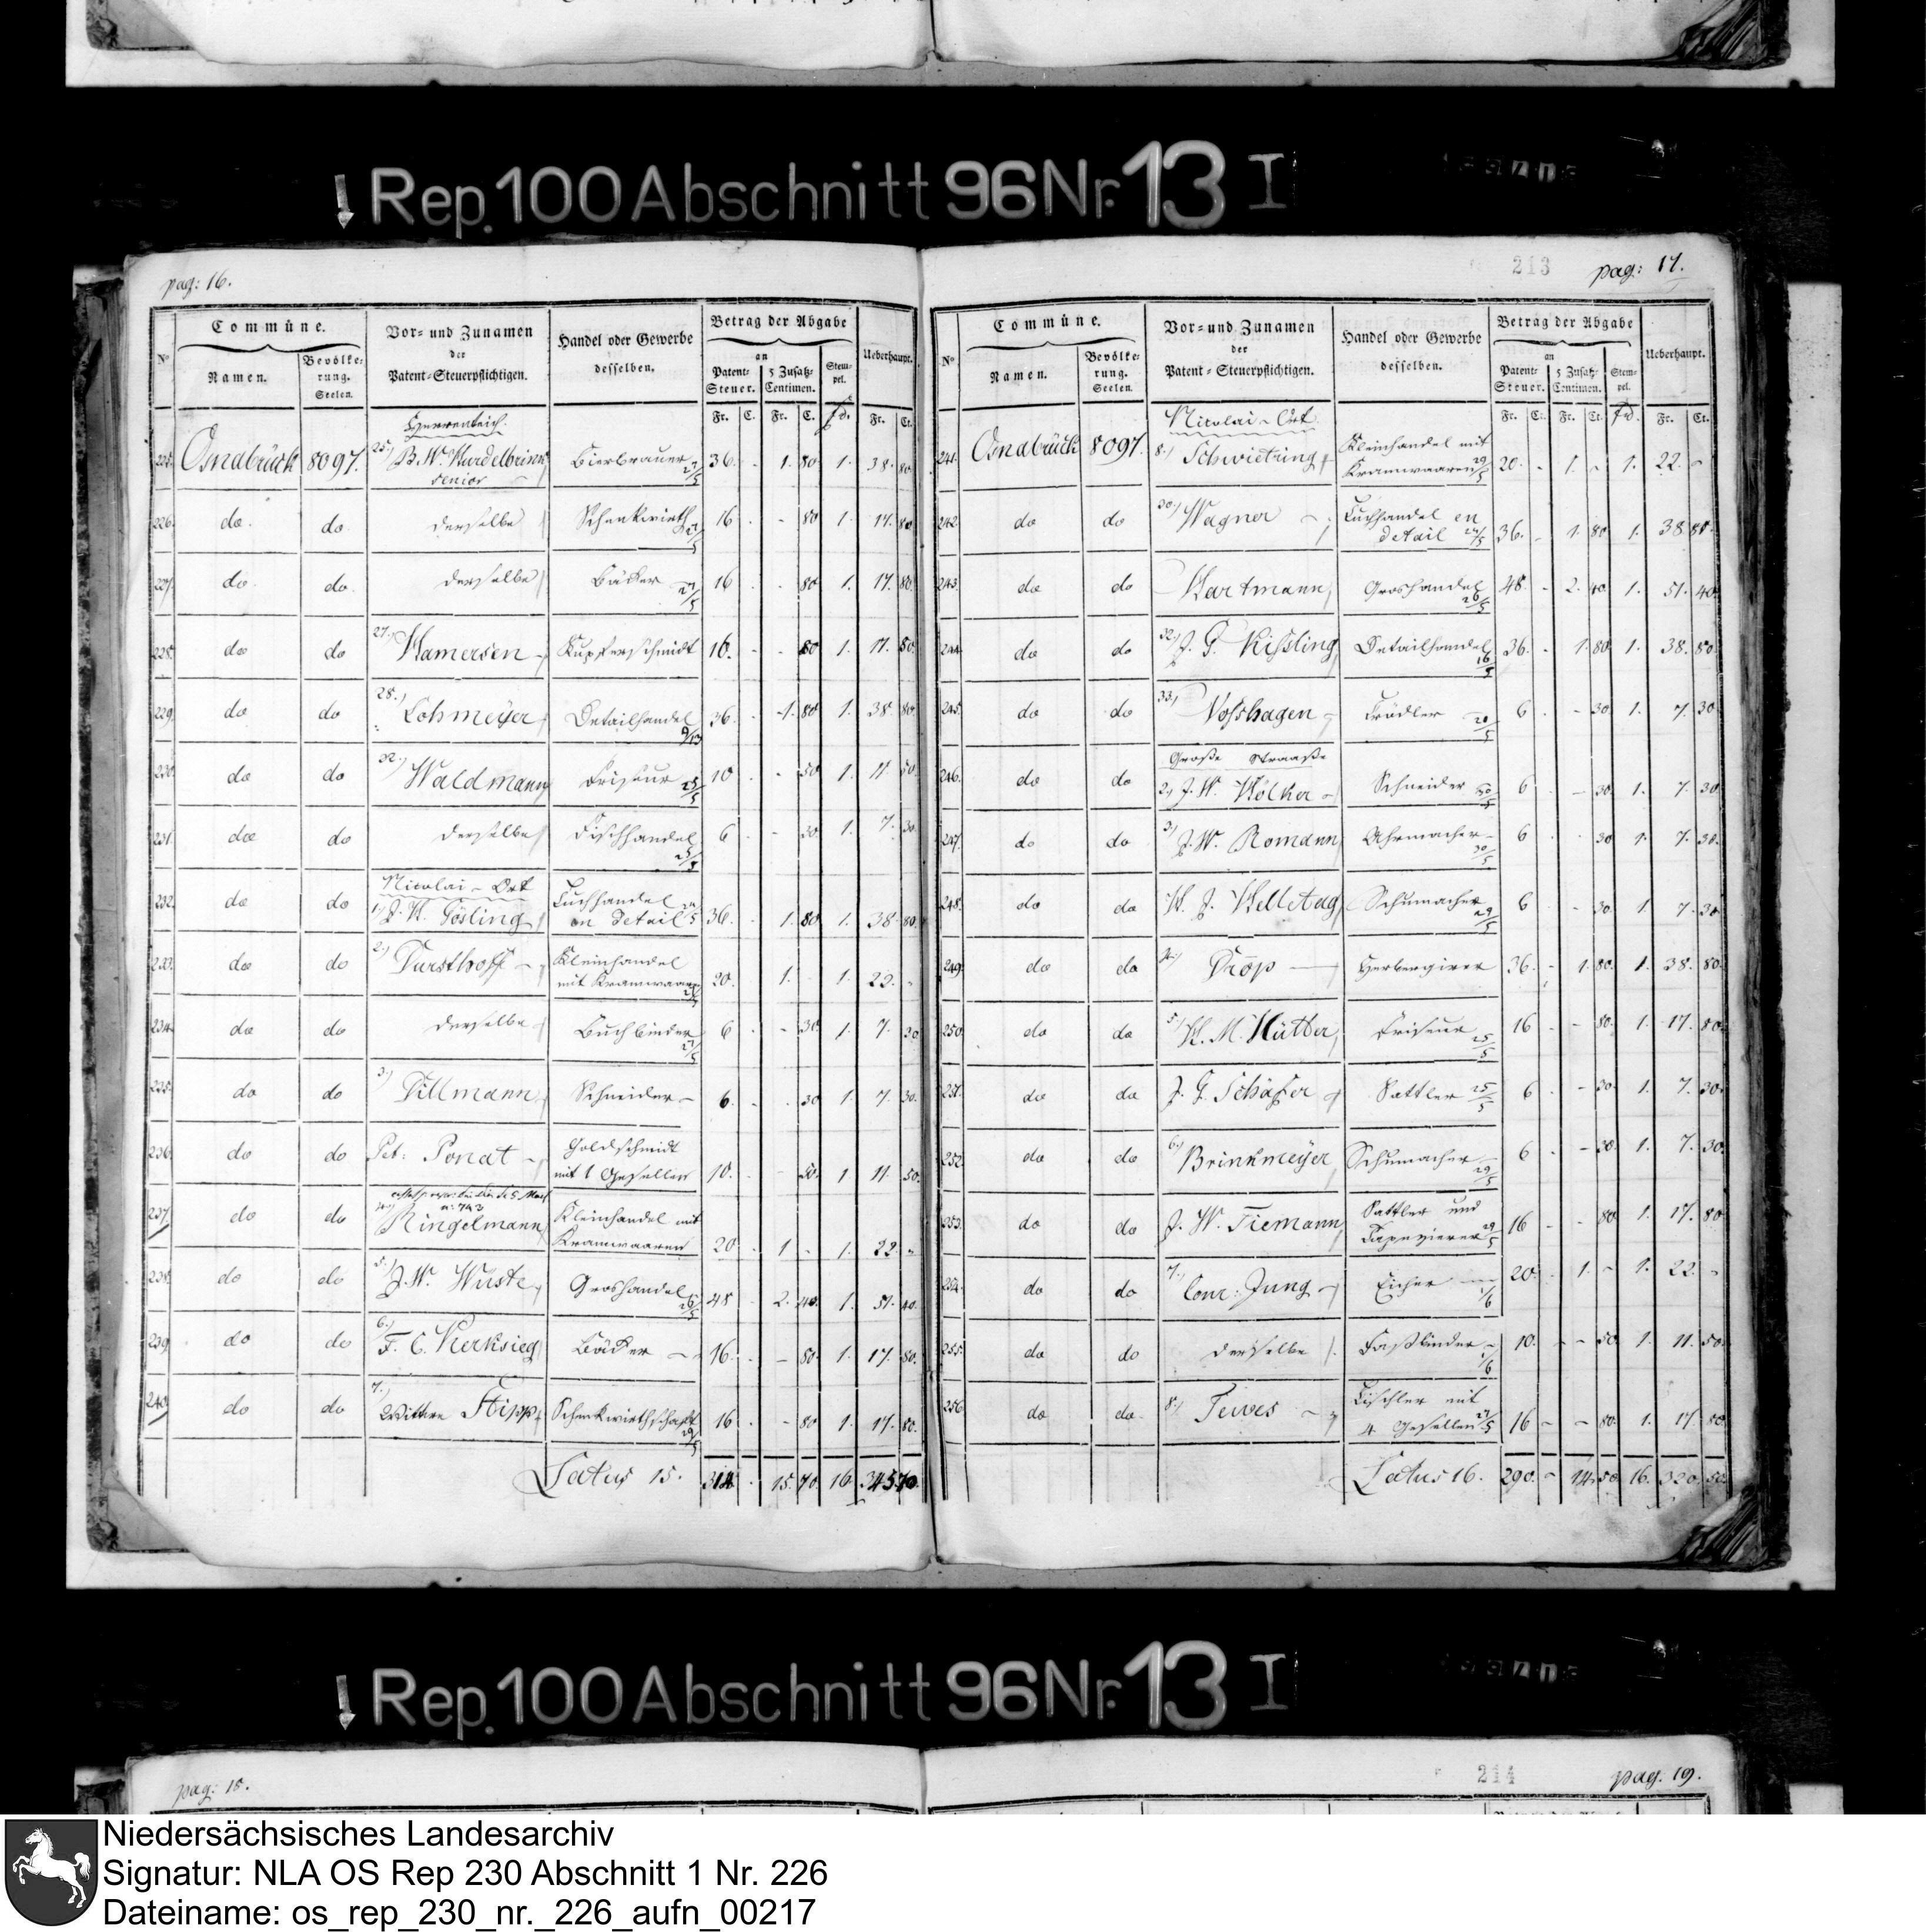 Rep. 100 Abschnitt 96 Nr. 13 I
pag: 16.
Nº Commüne. Vor= und Zunamen der Patent=Steuerpflichtigen. Handel oder Gewerbe desselben. Betrag der Abgabe Ueberhaupt.
Namen. Bevölke=rung. Seelen. an Patent=Steuer. 5 Zusatz=Centimen. Stem=pel.
Fr. C. Fr. C. Fr. Ct.
Herrenteich.
225. Osnabrück 8097. 25.) senior Bierbrauer 27/5 36. - 1. 80 1. 38. 80.
226. do. do derselbe Schenkwirth 27/5 16 - - 80 1. 17. 80
227. do. do. derselbe Bäcker 27/5 16 - - 80 1. 17. 80.
228. do do 27.) Hamersen Kupferschmidt 16. - - 80 1. 17. 80.
229. do do 28.) Lohmeÿer Detailhandel 36. - 1. 80 1. 38. 80.
230. do do 32.) Waldmann Friseur 25/5 10 - - 50 1. 11. 50.
231. do do derselbe Fischhandel 25/5 6 - - 30 1. 7. 30.
Nicolai-Ort
232. do do 1.) J. H. Gösling Tuchhandel en detail 36. - 1. 80. 1. 38. 80.
233. do do 2.) Dursthoff Kleinhandel mit Kramwaaren 20. 1. - 1. 22. -
234. do do derselbe Buchbinder 27/5 6 - - 30. 1. 7. 30.
235. do do 3.) Dillmann Schneider 6. - - 30 1. 7. 30.
236. do do Pet: Ponat Goldschmidt mit 1 Gesellen 10. - 50. 1 11. 50.
237. do do Ringelmann Kleinhandel mit Kramwaaren 20 - 1 - 1. 22. -
238. do do 5.) J. W. Wüste Groshandel 48 - 2. 40. 1. 51. 40.
239. do do 6.) F. C. Kerksieg Bäcker 16. - - 80. 1. 17. 80.
240. do do 7.) Wittwe Stipp Schenkwirthschaft 29/5 16 - - 80 1. 17. 80.
Latus 15. 314 - 15. 70. 16 345. 70.
213 pag: 17.
Nº Commüne. Vor= und Zunamen der Patent=Steuerpflichtigen. Handel oder Gewerbe desselben. Betrag der Abgabe Ueberhaupt.
Namen. Bevölke=rung. Seelen. an Patent=Steuer. 5 Zusatz=Centimen. Stem=pel.
Fr. Ct. Fr. Ct. Fr. Ct.
Nicolai-Ort.
241. Osnabrück 8097. 8.) Schwietring Kleinhandel mit Kramwaaren 29/5 20. - 1. - 1. 22. -
242. do do 30.) Wagner Tuchhandel en detail 36. - 1. 80 1. 38. 80.
243. do do Hartmann Groshandel 26/5 48. - 2. 40. 1. 51. 40.
244. do do 32.) J. G. Kißling Detailhandel 16/5 36. - 1. 80 1. 38. 80.
245. do do 33.) Voßhagen Trödler 20/5 6 - - 30 1. 7. 30
Große Straaße
246. do do 2.) J. W. Völker Schneider 30/5 6 - - 30. 1. 7. 30
247. do do 3.) J. W. Romann Uhrmacher 30/5 6 - - 30 1. 7. 30.
248. do do H. J. Helletag Schumacher 29/5 6 - 30. 1. 7. 30
249. do do 4.) Dröp Herbergirer 36. - 1. 80. 1. 38. 80.
250. do do 5.) H. M. Hütter Friseur 25/5 16 - - 80. 1. 17. 80.
251. do do J. G. Schäffer Sattler 25/5 6 - - 30. 1. 7. 30.
252. do do 6.) Brinkmeÿer Schumacher 29/5 6 - - 30. 1. 7. 30.
253. do do J. W. Tiemann Sattler und Tapezierer 29/5 16 - - 80 1. 17. 80
254. do do 7.) Conr: Jung Eicher 1/6 20. - 1. - 1. 22. -
255. do do derselbe Faßbinder 1/6 10. - - 50. 1. 11. 50.
256. do do 8.) Tewes Tischler mit 4 Gesellen 27/5 16 - - 80. 1. 17. 80
Latus 16. 290. - 14. 50. 16. 320. 50.
Rep. 100 Abschnitt 96 Nr. 13 I
pag: 18.
214 pag. 19.
Niedersächsisches Landesarchiv
Signatur: NLA OS Rep 230 Abschnitt 1 Nr. 226
Dateiname: os_rep_230_nr._226_aufn_00217